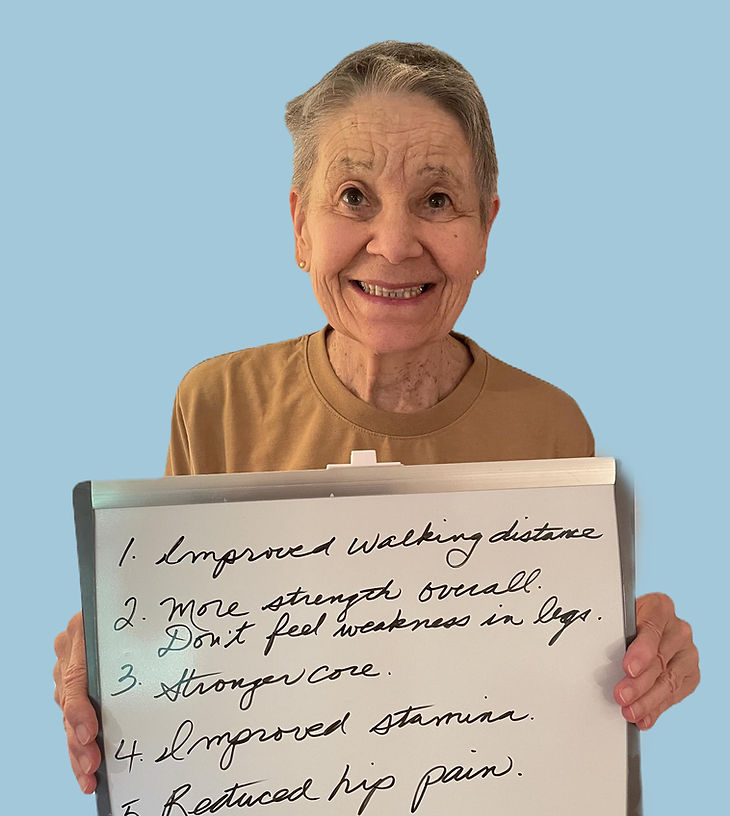 1. Improved walking distance
2. More strength overall.
Don't feel weakness in legs.
3. Stronger core.
4. Improved stamina.
5. Reduced hip pain.